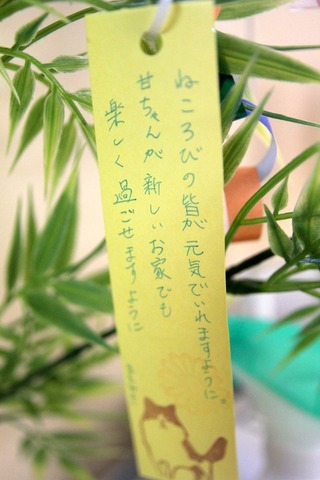 ねころびの皆が元気でいれますように。
甘ちゃんが新しいお家でも
楽しく過ごせますように